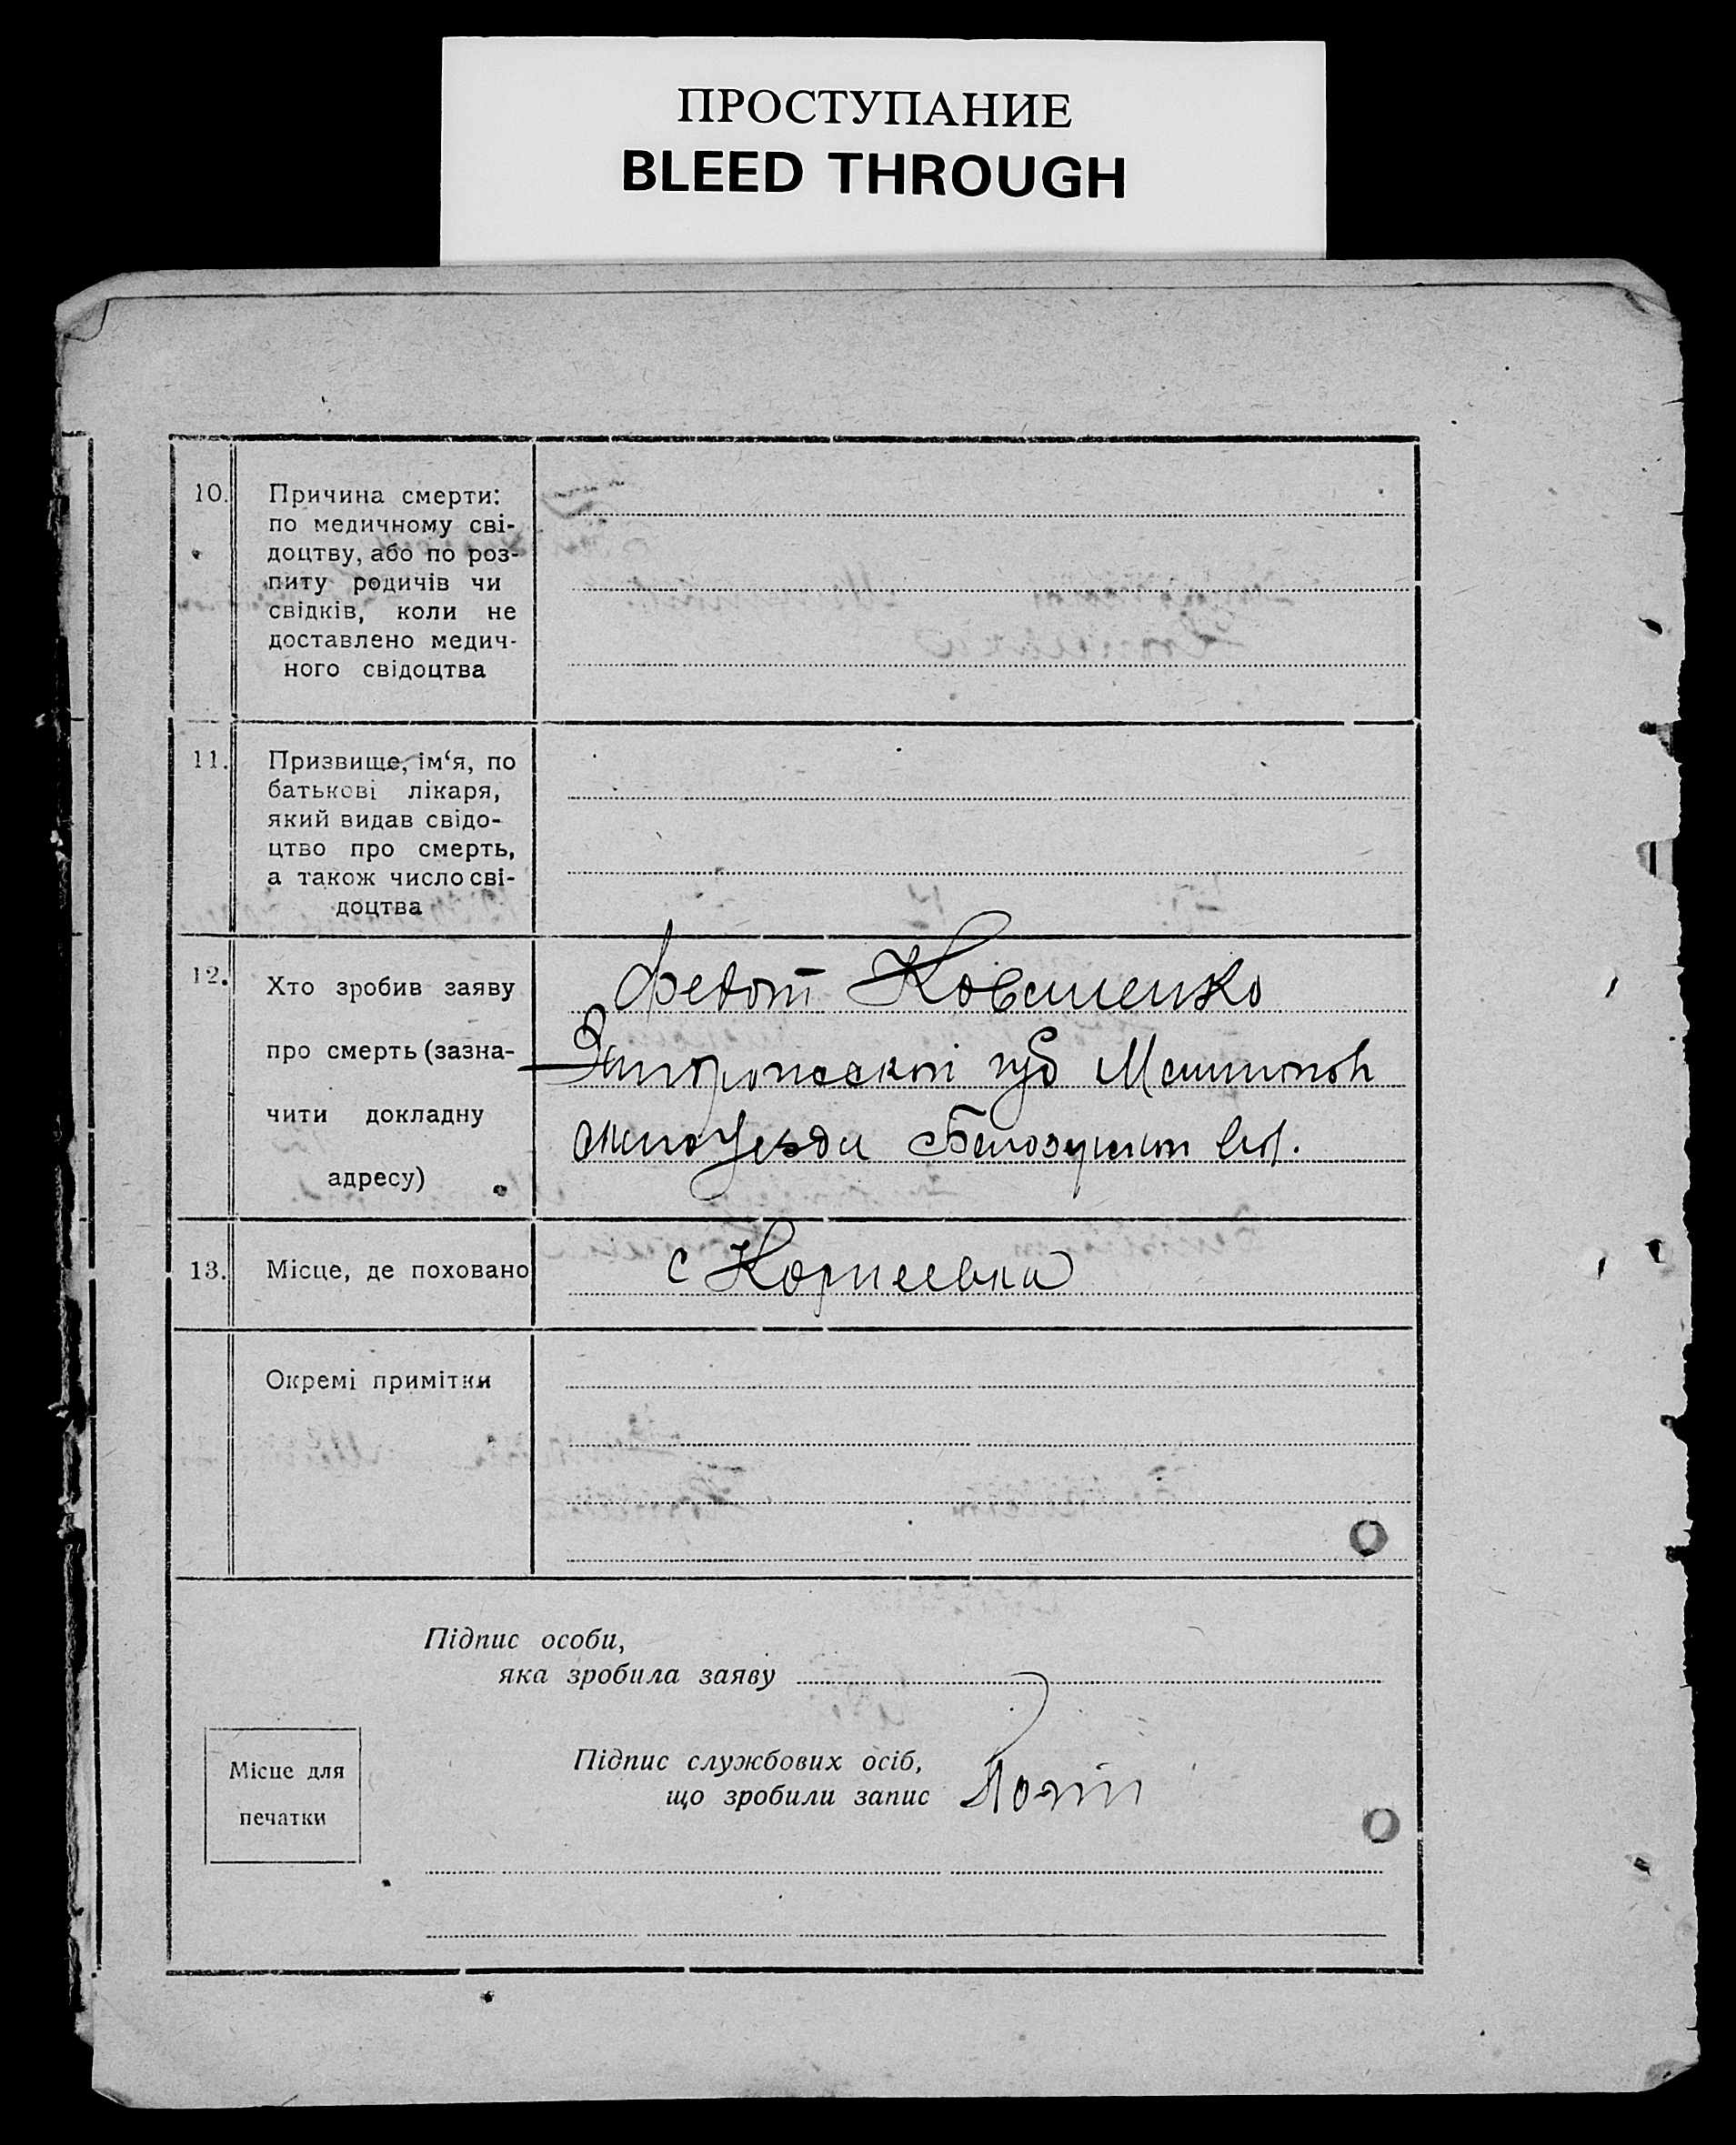 ПРОСТУПАНИЕ
BLEED THROUGH
10.
Причина смерти:
по медичному сві-
доцтву, або по роз-
питу родичів чи
свідків, коли не
доставлено медич-
ного свідоцтва
11.
Призвище, ім‘я, по
батькові лікаря,
який видав свідо-
цтво про смерть,
а також число сві-
доцтва
12.
Хто зробив заяву
про смерть (зазна-
чити докладну
адресу)
Федот
губ
13.
Місце, де поховано
с Корнеевка
Окремі примітки
Підпис особи,
яка зробила заяву
Місце для
печатки
Підпис службових осіб,
що зробили запис